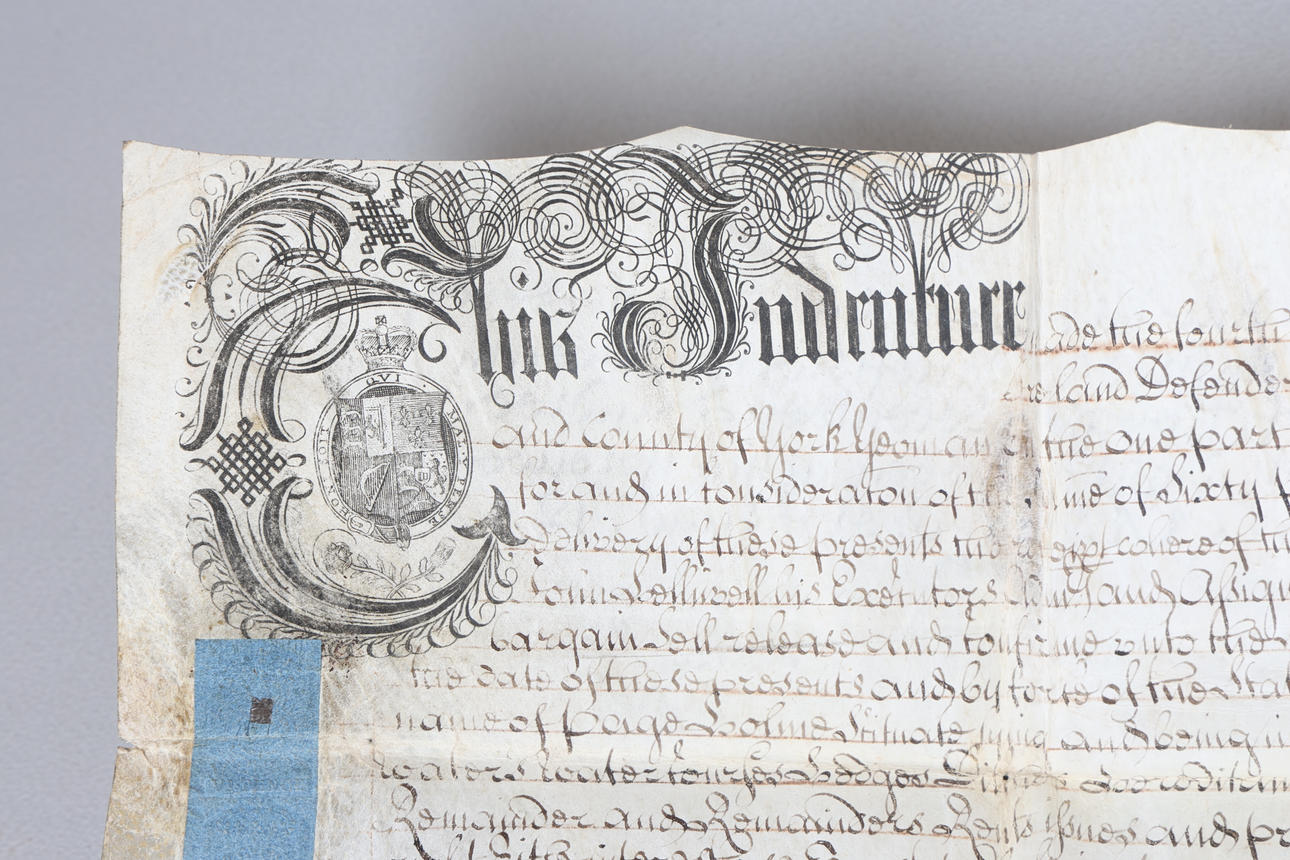 This Indenture made the fourth
Ireland Defender
and County of York Yeoman of the one part
for and in consideracon of the sume of Sixty
delivery of these presents the receipt whereof
John Helliwell his Executors Admrs and Assigns
bargain Sell release and confirme unto the
the date of these presents and by force of the Stat
name of Page Holme Situate lying and being
waters water courses Hedges Ditches
Remainder and Remainders Rents Issues and pr
QVI MAL Y PENSE